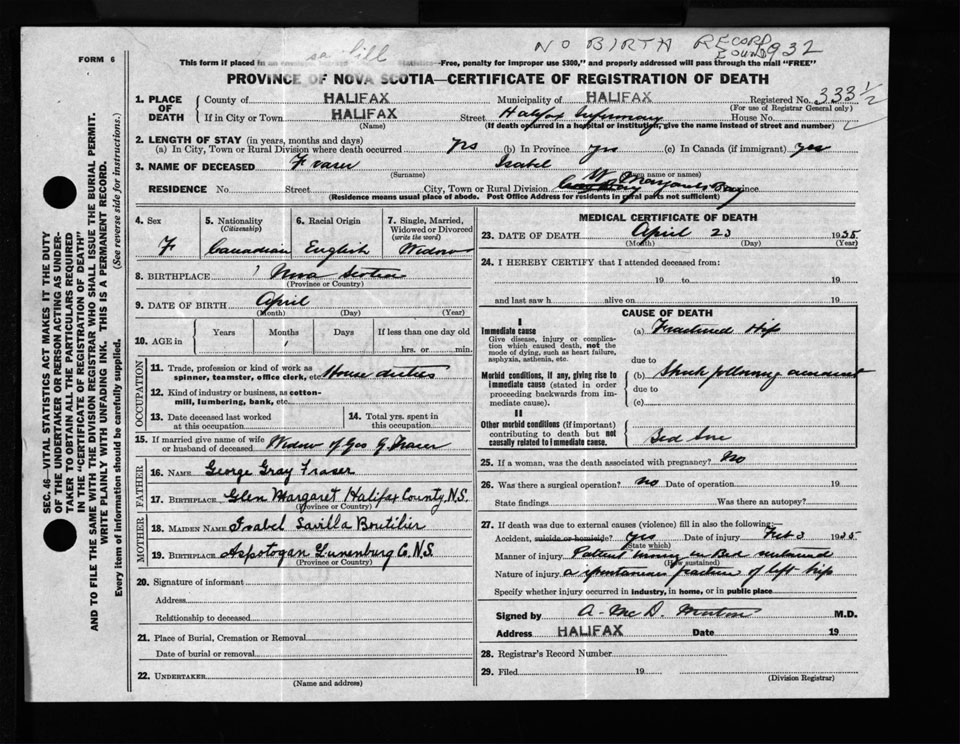 NO BIRTH RECORD FOUND 1932
FORM 6
This form if placed in Statistics—Free, penalty for improper use $300," and properly addressed will pass through the mail "FREE"
PROVINCE OF NOVA SCOTIA—CERTIFICATE OF REGISTRATION OF DEATH
1. PLACE OF DEATH
County of HALIFAX Municipality of HALIFAX Registered No. 333 1/2
(For use of Registrar General only)
If in City or Town HALIFAX Street Halifax Infirmary House No.
(Name) (If death occurred in a hospital or institution, give the name instead of street and number)
2. LENGTH OF STAY (in years, months and days)
(a) In City, Town or Rural Division where death occurred yrs (b) In Province yrs (c) In Canada (if immigrant) yes
3. NAME OF DECEASED Fraser Isabel
(Surname) (Given name or names)
RESIDENCE No. Street City, Town or Rural Division W. Margarets Bay Province
(Residence means usual place of abode. Post Office Address for residents in rural parts not sufficient)
4. Sex
F
5. Nationality
(Citizenship)
Canadian
6. Racial Origin
English
7. Single, Married, Widowed or Divorced
(write the word)
Widow
8. BIRTHPLACE Nova Scotia
(Province or Country)
9. DATE OF BIRTH April
(Month) (Day) (Year)
10. AGE in Years Months Days If less than one day old
hrs. or min.
OCCUPATION
11. Trade, profession or kind of work as spinner, teamster, office clerk, etc. House duties
12. Kind of industry or business, as cotton-mill, lumbering, bank, etc.
13. Date deceased last worked at this occupation
14. Total yrs. spent in this occupation
15. If married give name of wife or husband of deceased Widow of Geo G. Fraser
FATHER
16. NAME George Gray Fraser
17. BIRTHPLACE Glen Margaret Halifax County, N.S.
(Province or Country)
MOTHER
18. MAIDEN NAME Isabel Savilla Boutilier
19. BIRTHPLACE Aspotogan Lunenburg Co. N.S.
(Province or Country)
20. Signature of informant
Address
Relationship to deceased
21. Place of Burial, Cremation or Removal
Date of burial or removal
22. UNDERTAKER
(Name and address)
MEDICAL CERTIFICATE OF DEATH
23. DATE OF DEATH April 23 1935
(Month) (Day) (Year)
24. I HEREBY CERTIFY that I attended deceased from:
19 to 19
and last saw h alive on 19
CAUSE OF DEATH
I
Immediate cause (a) Fractured Hip
Give disease, injury or complication which caused death, not the mode of dying, such as heart failure, asphyxia, asthenia, etc.
due to
Morbid conditions, if any, giving rise to immediate cause (stated in order proceeding backwards from immediate cause).
(b) Shock following accident
due to
(c)
II
Other morbid conditions (if important) contributing to death but not causally related to immediate cause.
Bed Sore
25. If a woman, was the death associated with pregnancy? No
26. Was there a surgical operation? No Date of operation 19
State findings Was there an autopsy?
27. If death was due to external causes (violence) fill in also the following:—
Accident, suicide or homicide? yes Date of injury Feb 3 1935
(State which)
Manner of injury Patient turning in Bed sustained
(How sustained)
Nature of injury a spontaneous fracture of left hip
Specify whether injury occurred in industry, in home, or in public place
Signed by A. McD. Morton M.D.
Address HALIFAX Date 19
28. Registrar's Record Number
29. Filed 19
(Division Registrar)
SEC. 46—VITAL STATISTICS ACT MAKES IT THE DUTY
OF THE UNDERTAKER OR PERSON ACTING AS UNDER-
TAKER TO OBTAIN ALL THE PARTICULARS REQUIRED
IN THE "CERTIFICATE OF REGISTRATION OF DEATH"
AND TO FILE THE SAME WITH THE DIVISION REGISTRAR WHO SHALL ISSUE THE BURIAL PERMIT.
WRITE PLAINLY WITH UNFADING INK. THIS IS A PERMANENT RECORD.
Every item of information should be carefully supplied. (See reverse side for instructions.)